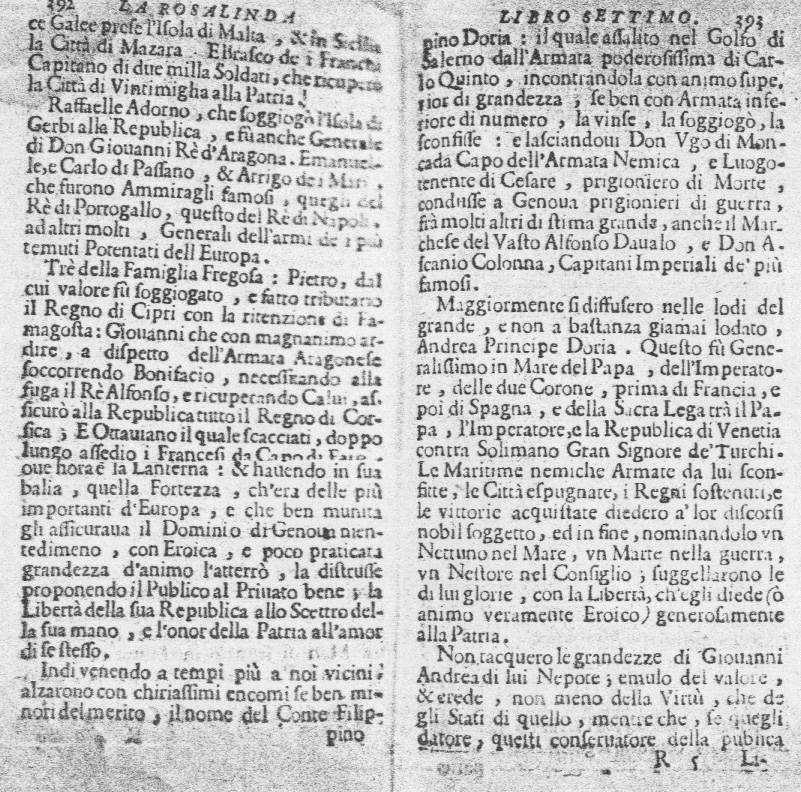 392 LA ROSALINDA
ce Galee prese l'Isola di Malta, & in Sicilia
la Città di Mazara. E Brasco de i Franchi
Capitano di due milla Soldati, che ricuperò
la Città di Vintimiglia alla Patria!
Raffaelle Adorno, che soggiogò l'Isola di
Gerbi alla Republica, e fù anche Generale
di Don Giouanni Rè d'Aragona. Emanuel-
le, e Carlo di Passano, & Arrigo de i Mari,
che furono Ammiragli famosi, quegli del
Rè di Portogallo, questo del Rè di Napoli,
ad altri molti, Generali dell'armi de i più
temuti Potentati dell Europa.
Trè della Famiglia Fregosa: Pietro, dal
cui valore fù soggiogato, e fatto tributario
il Regno di Cipri con la ritenzione di Fa-
magosta: Giouanni che con magnanimo ar-
dire, a dispetto dell'Armata Aragonese
soccorrendo Bonifacio, necessitando alla
fuga il Rè Alfonso, e ricuperando Calui, as-
sicurò alla Republica tutto il Regno di Cor-
sica; E Ottauiano il quale scacciati, doppo
lungo assedio i Francesi da Capo di Faro,
oue hora è la Lanterna: & hauendo in sua
balia, quella Fortezza, ch'era delle più
importanti d'Europa, e che ben munita
gli assicuraua il Dominio di Genoua nien-
tedimeno, con Eroica, e poco praticata
grandezza d'animo l'atterrò, la distrusse
proponendo il Publico al Priuato bene; la
Libertà della sua Republica allo Scettro del-
la sua mano, e l'onor della Patria all'amor
di se stesso.
Indi venendo a tempi più a noi vicini;
alzarono con chiriassimi encomi se ben mi-
nori del merito, il nome del Conte Filip-
pino
LIBRO SETTIMO. 393
pino Doria: il quale assalito nel Golfo di
Salerno dall'Armata poderosissima di Car-
lo Quinto, incontrandola con animo supe-
rior di grandezza, se ben con Armata infe-
riore di numero, la vinse, la soggiogò, la
sconfisse: e lasciandoui Don Vgo di Mon-
cada Capo dell'Armata Nemica, e Luogo-
tenente di Cesare, prigioniero di Morte,
condusse a Genoua prigionieri di guerra,
frà molti altri di stima grande, anche il Mar-
chese del Vasto Alfonso Daualo, e Don A-
scanio Colonna, Capitani Imperiali de' più
famosi.
Maggiormente si diffusero nelle lodi del
grande, e non a bastanza giamai lodato,
Andrea Principe Doria. Questo fù Gene-
ralissimo in Mare del Papa, dell'Imperato-
re, delle due Corone, prima di Francia, e
poi di Spagna, e della Sacra Lega trà il Pa-
pa, l'Imperatore, e la Republica di Venetia
contra Solimano Gran Signore de' Turchi.
Le Maritime nemiche Armate da lui scon-
fitte, le Città espugnate, i Regni sostenuti, e
le vittorie acquistate diedero a' lor discorsi
nobil soggetto, ed in fine, nominandolo vn
Nettuno nel Mare, vn Marte nella guerra,
vn Nestore nel Consiglio; suggellarono le
di lui glorie, con la Libertà, ch'egli diede (ò
animo veramente Eroico) generosamente
alla Patria.
Non tacquero le grandezze di Giouanni
Andrea di lui Nepote; emulo del valore,
& erede, non meno della Virtù, che de
gli Stati di quello, mentre che, se quegli
datore, questi conseruatore della publica
R 5 Li-